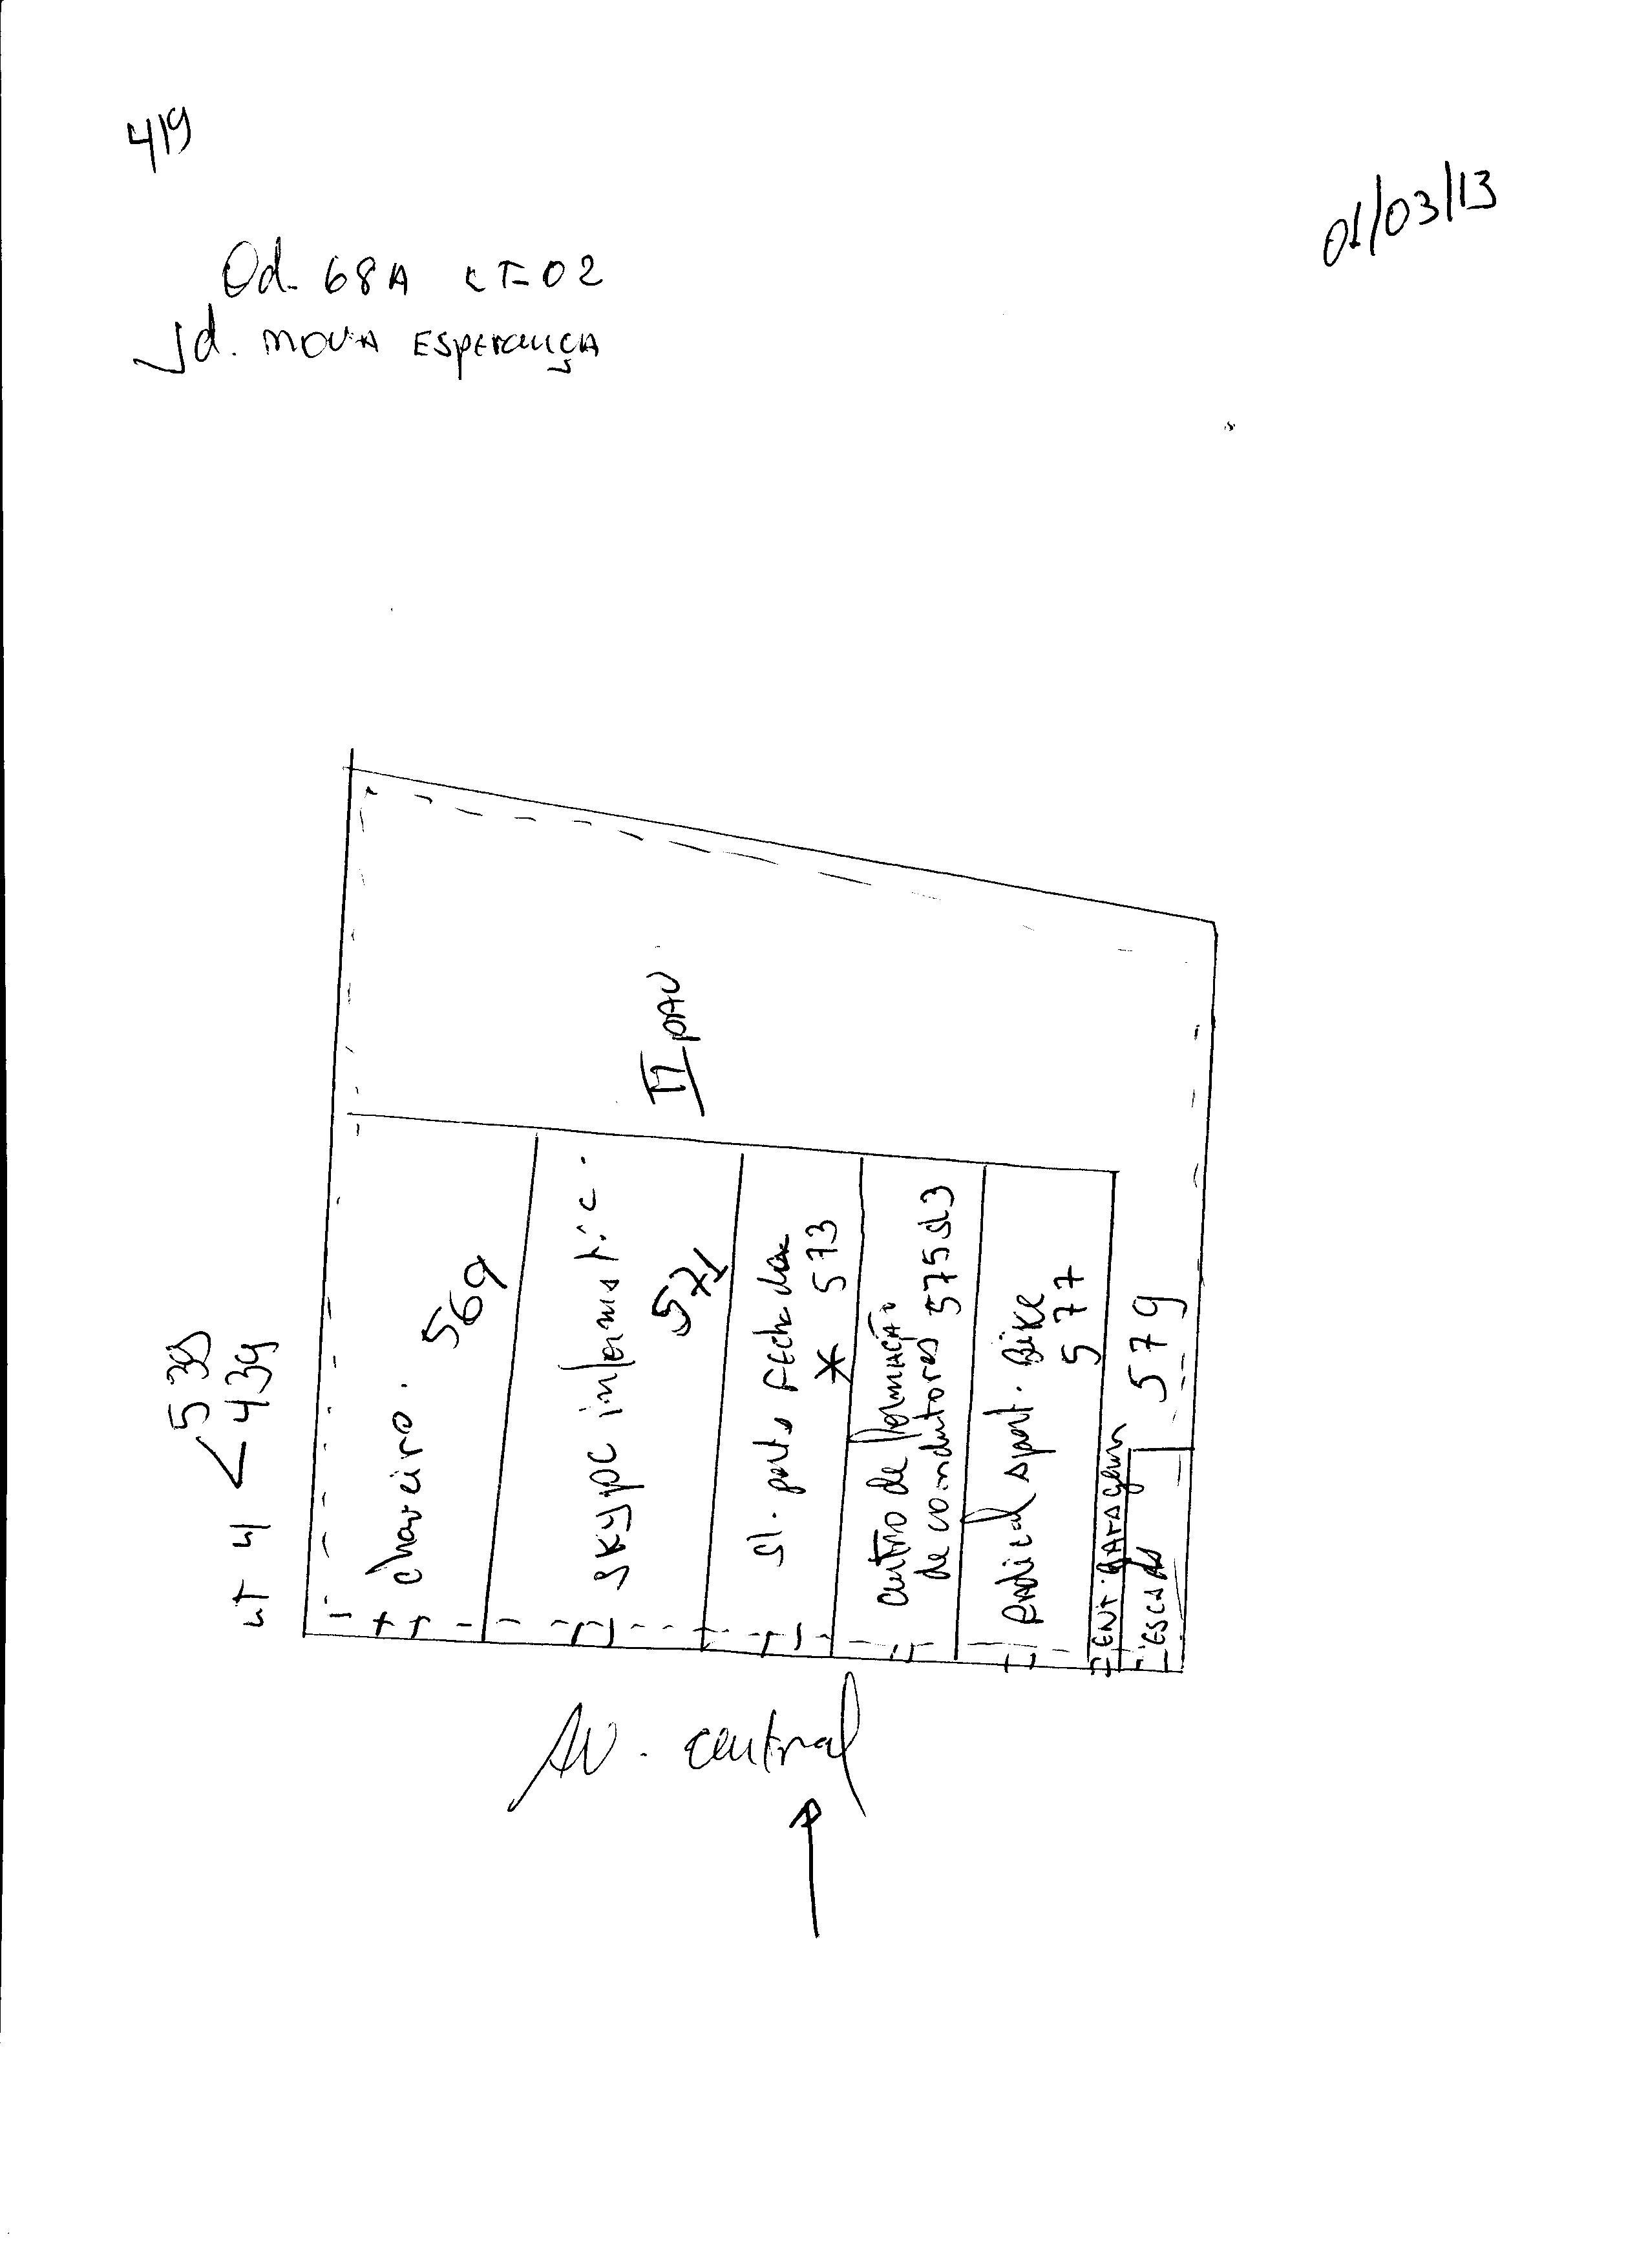 419
01/03/13
Qd. 68A LT-02
Jd. NOVA ESPERANÇA
LT 4 < 539
439
II PAV
chaveiro.
569
SKYPC informatic.
571
sl. porta FECHADA
* 573
centro de formação
de condutores 575 sl 3
Radical sport. Bike
577
ENT GARAGEM
ESCADA
579
Av. central